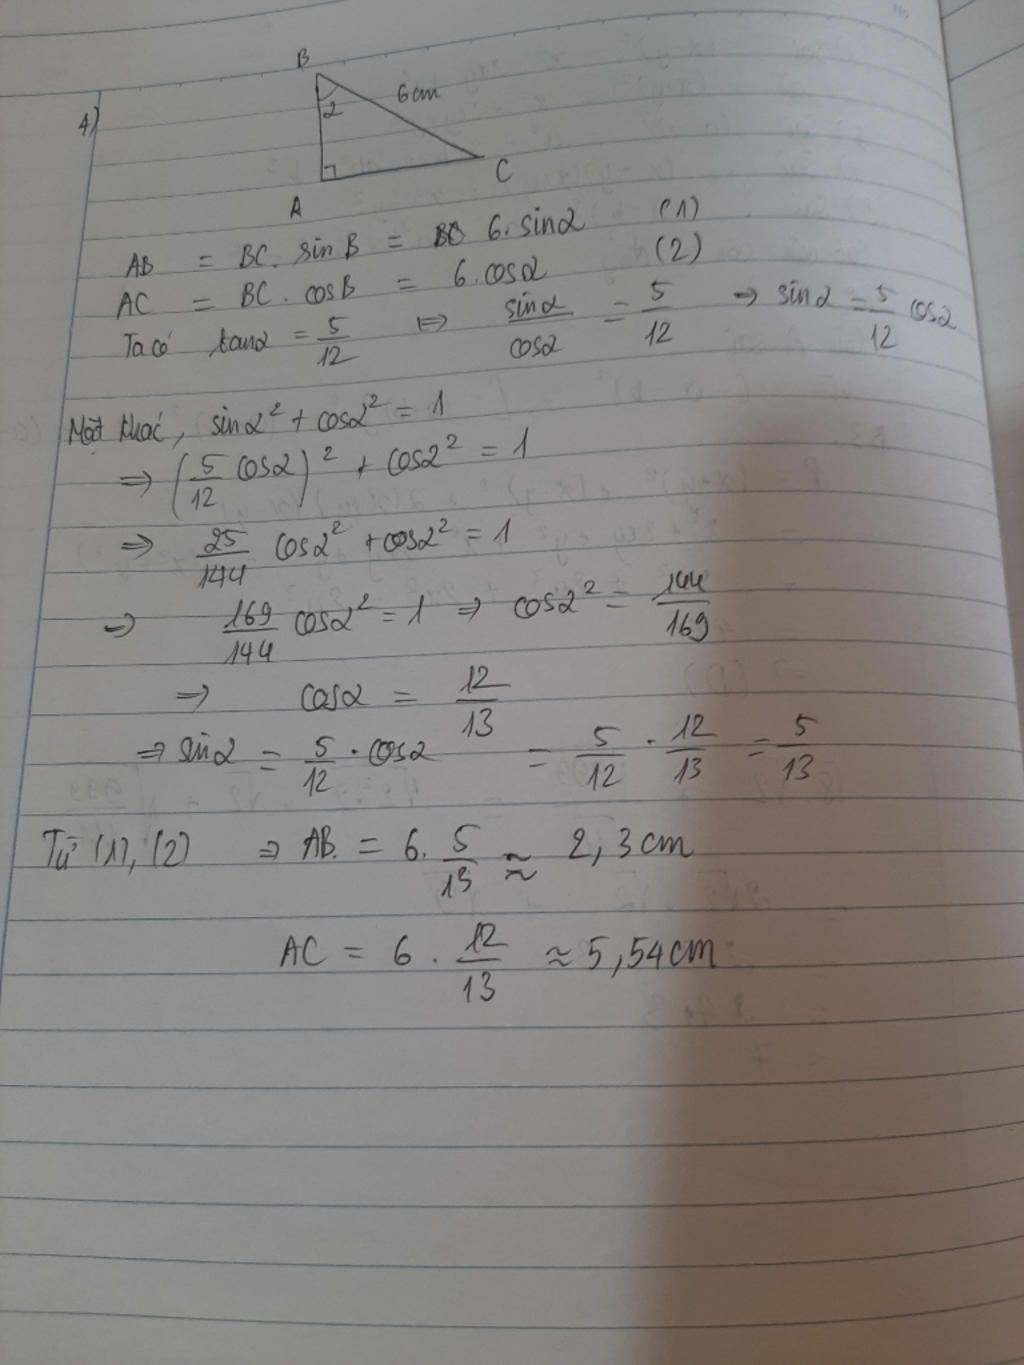 4)
B
6cm
α
A
C
AB = BC. sin B = 6. sinα (1)
AC = BC. cosB = 6. cosα (2)
Ta có tanα = 5/12 ⇔ sinα/cosα = 5/12 ⇒ sinα = 5/12 cosα
Mặt khác, sinα² + cosα² = 1
⇒ (5/12 cosα)² + cosα² = 1
⇒ 25/144 cosα² + cosα² = 1
⇒ 169/144 cosα² = 1 ⇒ cosα² = 144/169
⇒ cosα = 12/13
⇒ sinα = 5/12 . cosα = 5/12 . 12/13 = 5/13
Từ (1), (2) ⇒ AB. = 6. 5/13 ≈ 2,3cm
AC = 6 . 12/13 ≈ 5,54cm